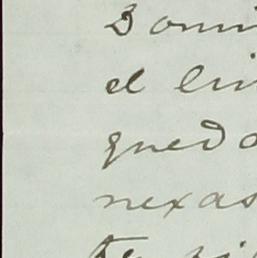 Domi
el lin
qued
nexas